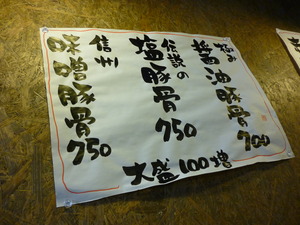 醤油豚骨700
伝説の
塩豚骨750
信州
味噌豚骨750
大盛100増